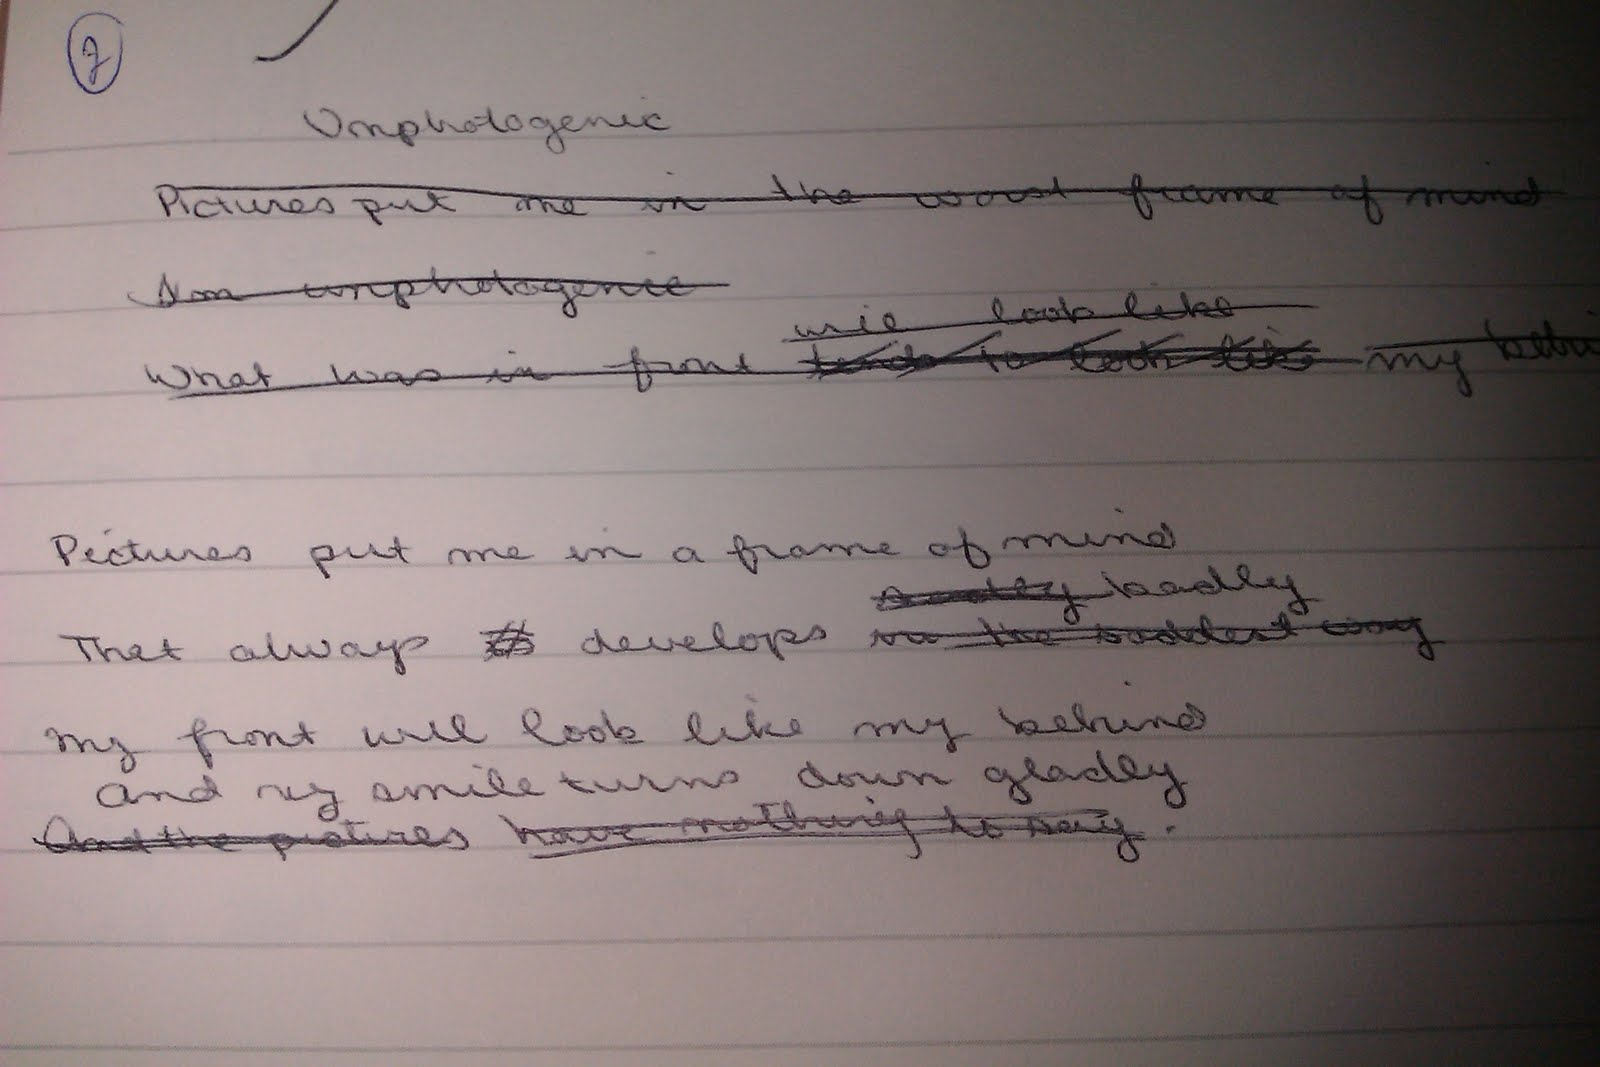 2
Unphotogenic
Pictures put me in the worst frame of mind
I'm unphotogenic
will look like
What was in front tends to look like my behi
Pictures put me in a frame of mind
badly
That always develops in the saddest way
My front will look like my behind
And my smile turns down gladly
And the pictures have nothing to say.